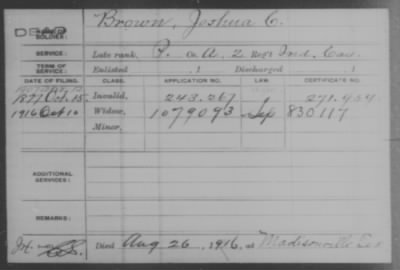 Brown, Joshua C.
SOLDIER:
SERVICE: Late rank, P. Co. A, 2 Reg't Ind. Cav.
TERM OF SERVICE: Enlisted , 1 Discharged , 1
DATE OF FILING. CLASS. APPLICATION NO. LAW. CERTIFICATE NO.
1877 Oct. 15 Invalid, 243.267 271.454
1916 Oct 10 Widow, 1079093 Sep 830117
Minor,
ADDITIONAL SERVICES:
REMARKS:
Died Aug 26, 1916, at Madisonville